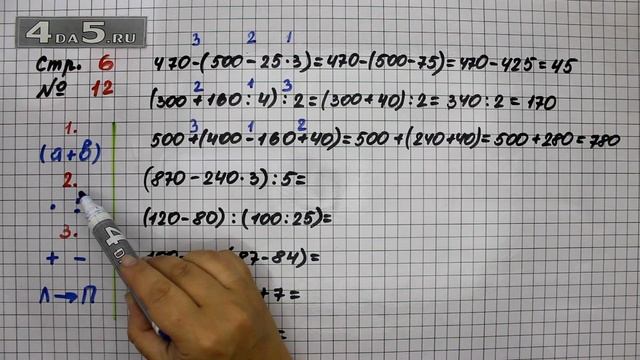 4DA5.RU
Стр. 6
№ 12
1.
(а+в)
2.
· :
3.
+ −
Л→П
3 2 1
470-(500-25·3)=470-(500-75)=470-425=45
2 1 3
(300+160:4):2=(300+40):2=340:2=170
3 1 2
500+(400-160+40)=500+(240+40)=500+280=780
(870-240·3):5=
(120-80):(100:25)=
87-84)=
+7=
=
4D